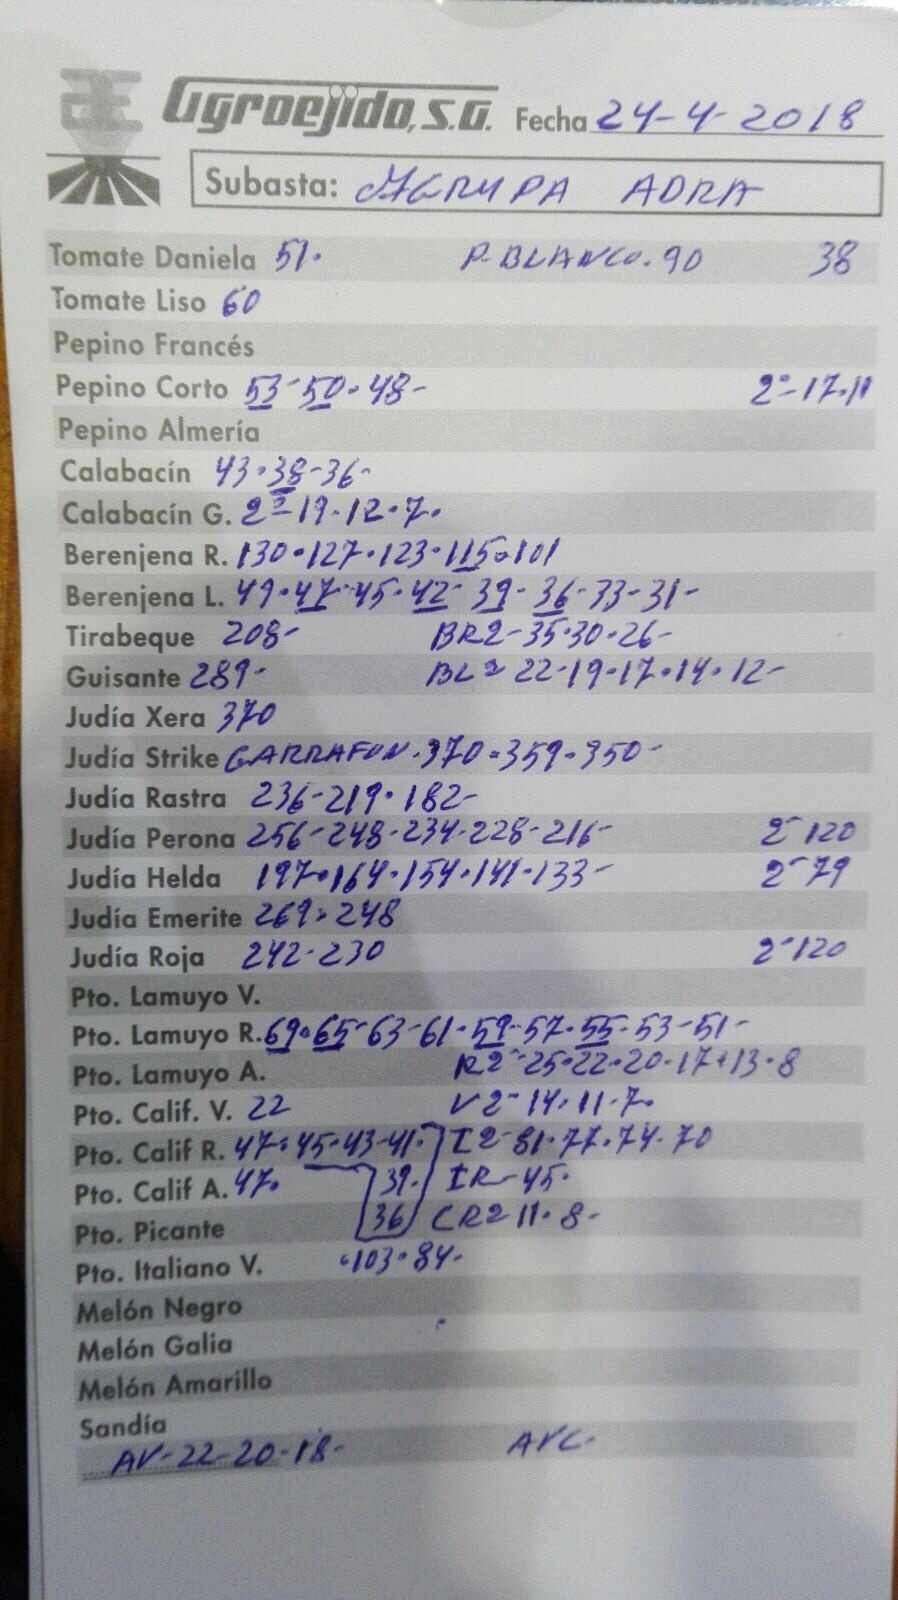 Agroejido, S.A. Fecha 24-4-2018
Subasta: AGRUPA ADRA
Tomate Daniela 51. P. BLANCO. 90 38
Tomate Liso 60
Pepino Francés
Pepino Corto 53-50-48- 2ª-17.11
Pepino Almería
Calabacín 43.38-36-
Calabacín G. 2ª-19-12.7.
Berenjena R. 130.127.123.115.101
Berenjena L. 49.47-45.42-39-36-33-31-
Tirabeque 208- BR2-35.30.26-
Guisante 289- BL2 22-19.17.14.12-
Judía Xera 370
Judía Strike GARRAFON.370.359.350-
Judía Rastra 236-219.182-
Judía Perona 256-248-234-228-216- 2-120
Judía Helda 197.164.154.141.133- 2-79
Judía Emerite 269.248
Judía Roja 242-230 2-120
Pto. Lamuyo V.
Pto. Lamuyo R. 69.65-63-61.59-57.55.53-51-
Pto. Lamuyo A. R2-25.22.20.17.13.8
Pto. Calif. V. 22 V2-14.11.7.
Pto. Calif R. 47.45-43-41. I2-81.77.74.70
Pto. Calif A. 47. 39. IR-45.
Pto. Picante 36 CR2 11.8-
Pto. Italiano V. .103.84-
Melón Negro
Melón Galia
Melón Amarillo
Sandía
AV-22-20-18- AVC-